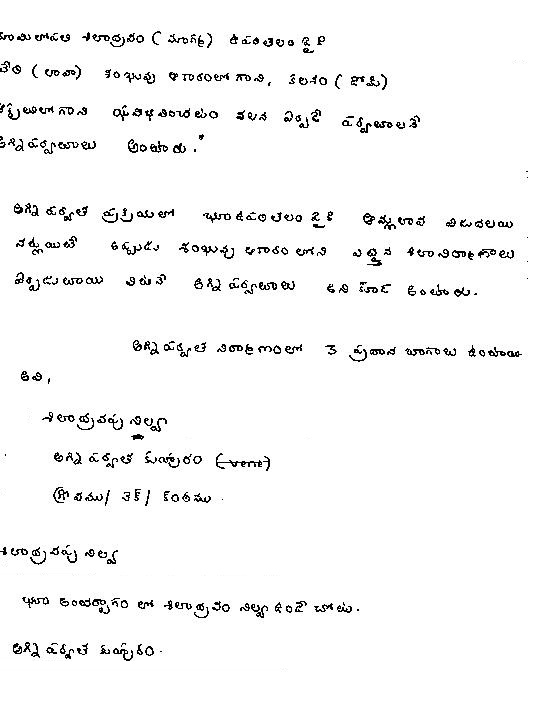 భూమిలోపలి శిలాద్రవం ( మాగ్మ) ఉపరితలం పైకి
చేరి ( లావా) శంఖువు ఆకారంలో గాని, కలశం ( డోమ్)
ఆకృతిలో గాని ఘనీభవించటం వలన ఏర్పడే పర్వతాలనే
అగ్నిపర్వతాలు అంటారు.
అగ్ని పర్వత ప్రక్రియలో భూ ఉపరితలం పైకి ఆమ్లలావా విడుదలయి
నట్లయితే అప్పుడు శంఖువు ఆకారం లాగని ఎత్తైన శిలానిర్మాణాలు
ఏర్పడుతాయి వీటినే అగ్ని పర్వతాలు అని కూడా అంటారు.
అగ్ని పర్వత నిర్మాణంలో 3 ప్రదాన బాగాలు ఉంటాయి
అవి,
శిలాద్రవపు నిల్వా
అగ్ని పర్వత కుహరం (vent)
గ్రీవము/ నెక్/ కంఠము
శిలాద్రవపు నిల్వ
భూ అంతర్భాగం లో శిలాద్రవం నిల్వ ఉండే చోటు.
అగ్ని పర్వత కుహరం.